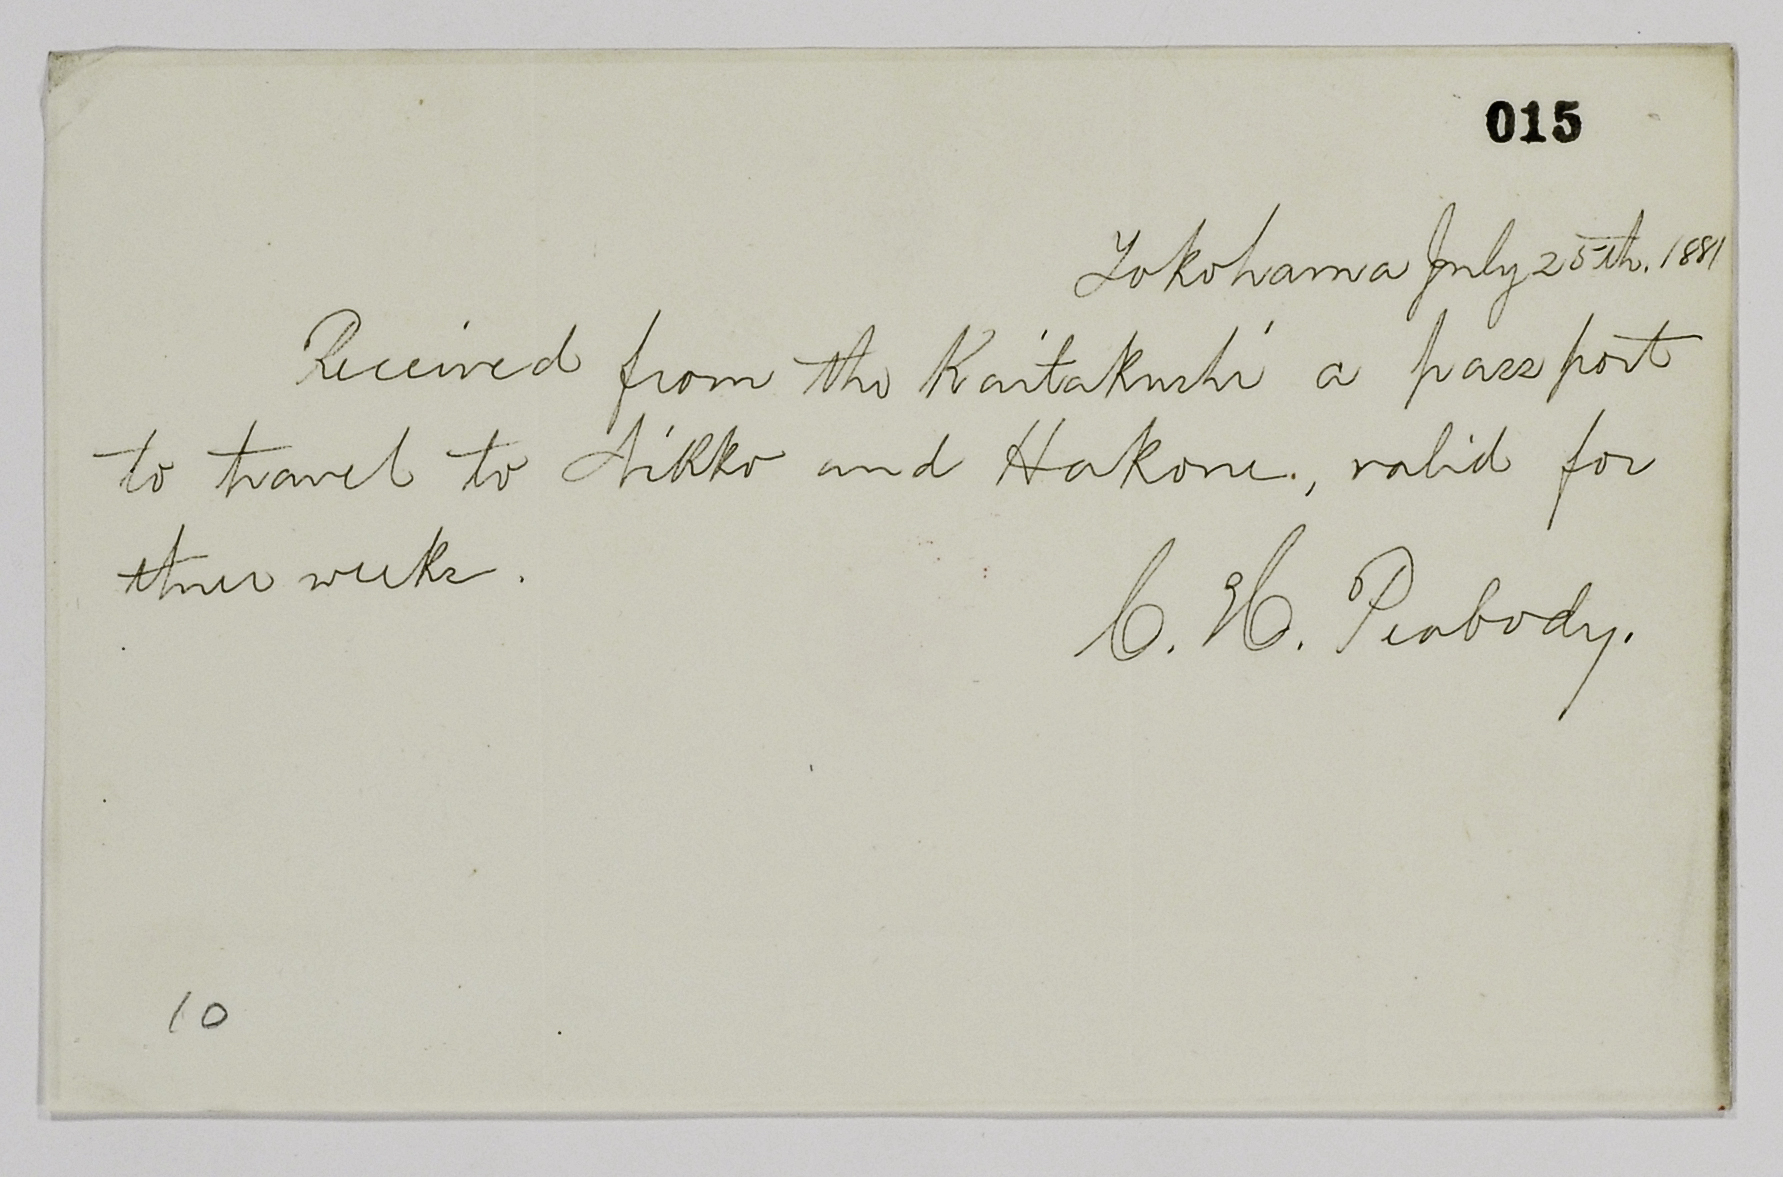 015
Yokohama July 25th. 1881
Received from the Kaitakushi a passport
to travel to Nikko and Hakone., valid for
three weeks.
C. H. Peabody.
10